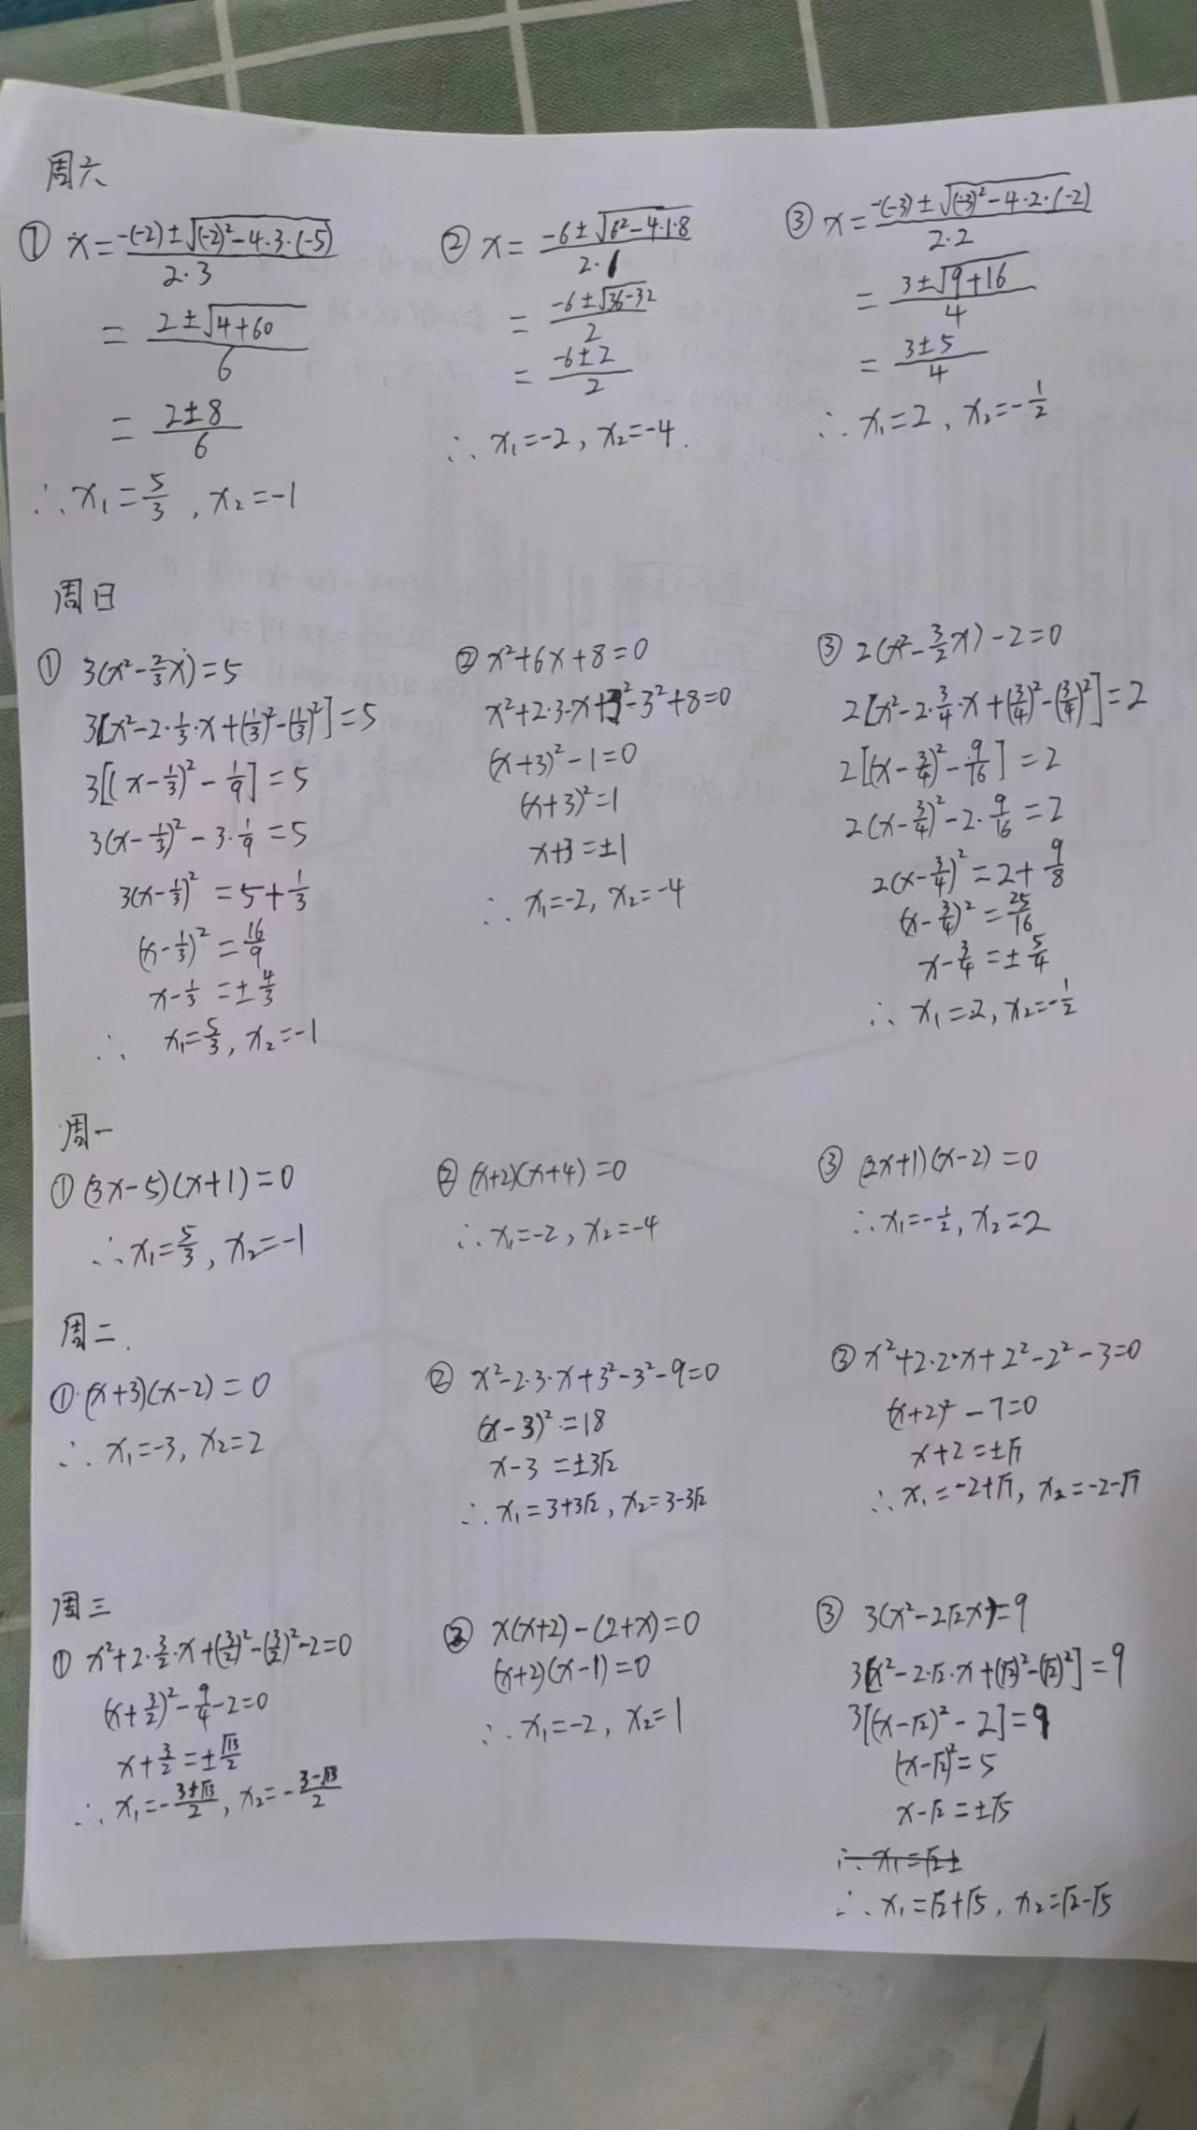 周六
① x=(-(-2)±√((-2)²-4·3·(-5)))/(2·3)
=(2±√(4+60))/6
=(2±8)/6
∴x₁=5/3, x₂=-1
② x=(-6±√(6²-4·1·8))/(2·1)
=(-6±√(36-32))/2
=(-6±2)/2
∴x₁=-2, x₂=-4.
③ x=(-(-3)±√((-3)²-4·2·(-2)))/(2·2)
=(3±√(9+16))/4
=(3±5)/4
∴x₁=2, x₂=-1/2
周日
① 3(x²-2/3x)=5
3[x²-2·1/3·x+(1/3)²-(1/3)²]=5
3[(x-1/3)²-1/9]=5
3(x-1/3)²-3·1/9=5
3(x-1/3)²=5+1/3
(x-1/3)²=16/9
x-1/3=±4/3
∴x₁=5/3, x₂=-1
② x²+6x+8=0
x²+2·3·x+3²-3²+8=0
(x+3)²-1=0
(x+3)²=1
x+3=±1
∴x₁=-2, x₂=-4
③ 2(x²-3/2x)-2=0
2[x²-2·3/4·x+(3/4)²-(3/4)²]=2
2[(x-3/4)²-9/16]=2
2(x-3/4)²-2·9/16=2
2(x-3/4)²=2+9/8
(x-3/4)²=25/16
x-3/4=±5/4
∴x₁=2, x₂=-1/2
周一
① (3x-5)(x+1)=0
∴x₁=5/3, x₂=-1
② (x+2)(x+4)=0
∴x₁=-2, x₂=-4
③ (2x+1)(x-2)=0
∴x₁=-1/2, x₂=2
周二.
① (x+3)(x-2)=0
∴x₁=-3, x₂=2
② x²-2·3·x+3²-3²-9=0
(x-3)²=18
x-3=±3√2
∴x₁=3+3√2, x₂=3-3√2
③ x²+2·2·x+2²-2²-3=0
(x+2)²-7=0
x+2=±√7
∴x₁=-2+√7, x₂=-2-√7
周三
① x²+2·3/2·x+(3/2)²-(3/2)²-2=0
(x+3/2)²-9/4-2=0
x+3/2=±√13/2
∴x₁=-(3+√13)/2, x₂=-(3-√13)/2
② x(x+2)-(2+x)=0
(x+2)(x-1)=0
∴x₁=-2, x₂=1
③ 3(x²-2√2x)=9
3[x²-2·√2·x+(√2)²-(√2)²]=9
3[(x-√2)²-2]=9
(x-√2)²=5
x-√2=±√5
∴x₁=√2±
∴x₁=√2+√5, x₂=√2-√5